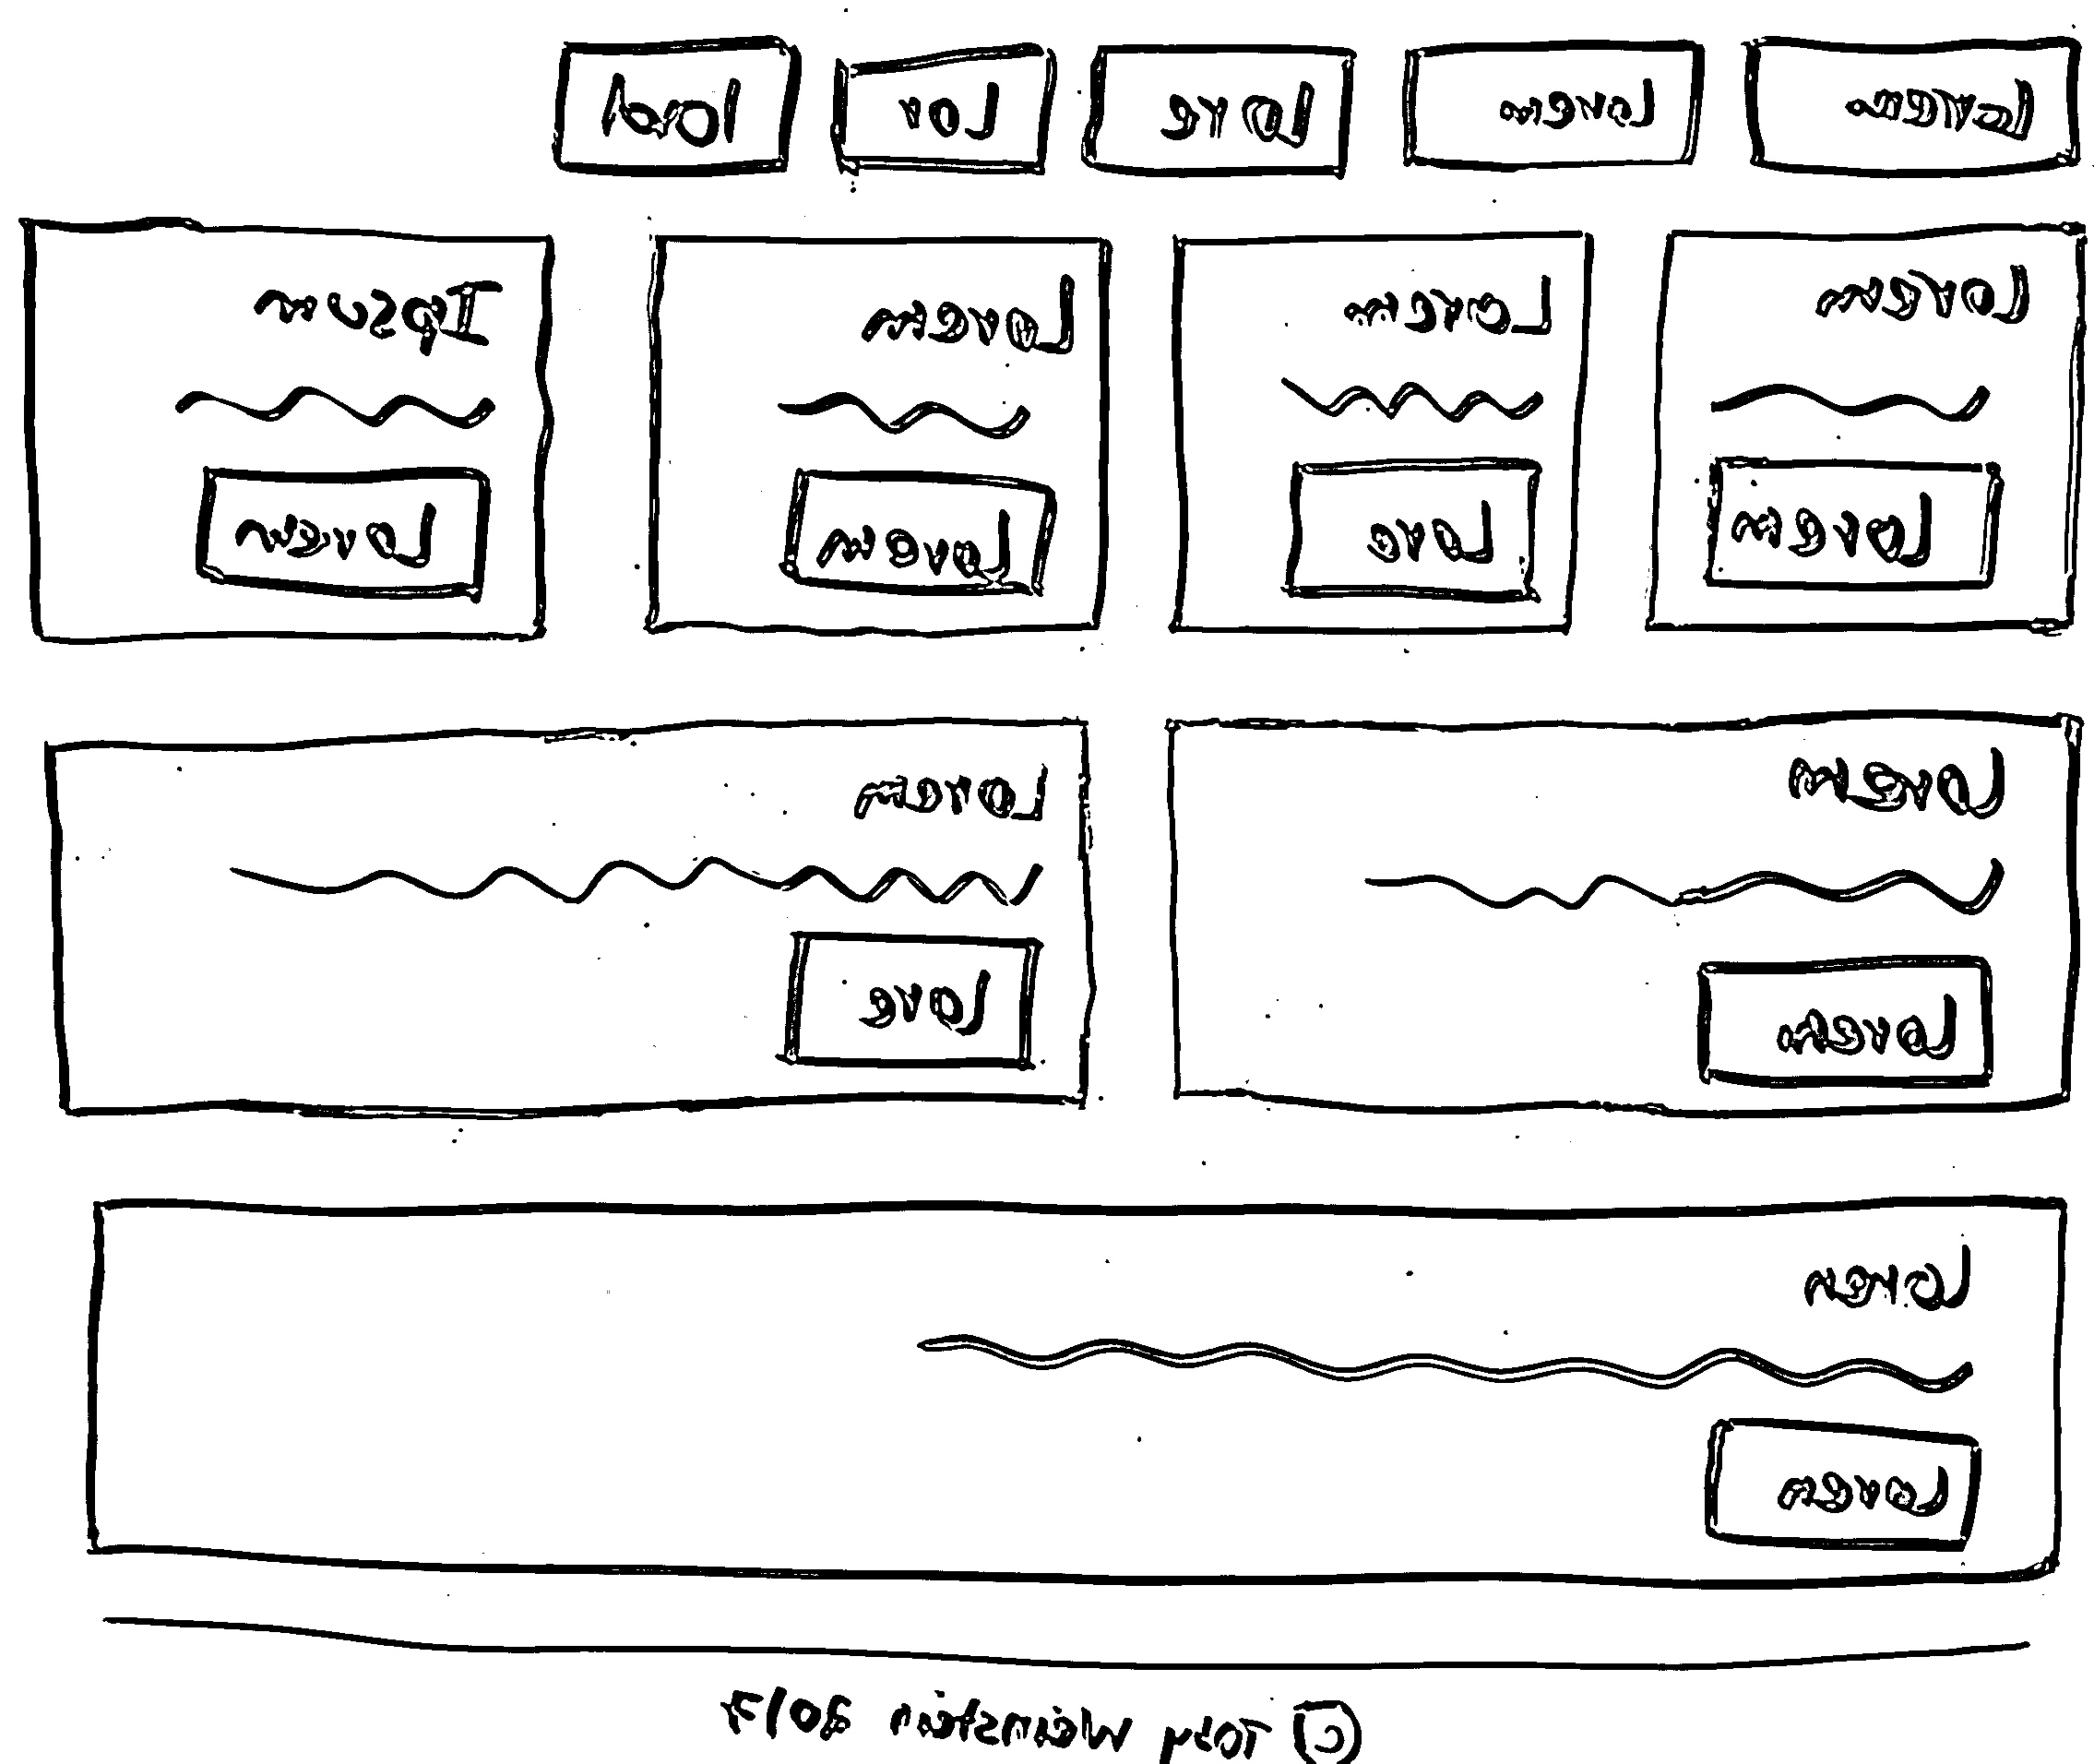 Lorem Lorem Lore Lor
Lorem Lorem Lorem Ipsum
Lorem Lore Lorem Lorem
Lorem Lorem
Lorem Lore
Loren
Lorem
© Toby Weinstein 2017